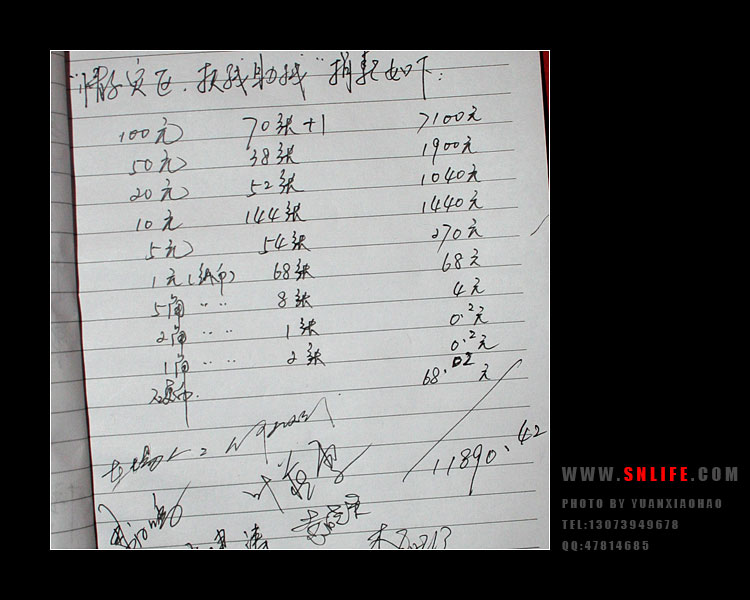 "情系灾区.扶残助残"捐款如下:
100元 70张+1 7100元
50元 38张 1900元
20元 52张 1040元
10元 144张 1440元
5元 54张 270元
1元(纸币) 68张 68元
5角 〃 〃 8张 4元
2角 〃 〃 1张 0.2元
1角 〃 〃 2张 0.2元
硬币. 68.02元
11890.42
WWW.SNLIFE.COM
PHOTO BY YUANXIAOHAO
TEL:13073949678
QQ:47814685